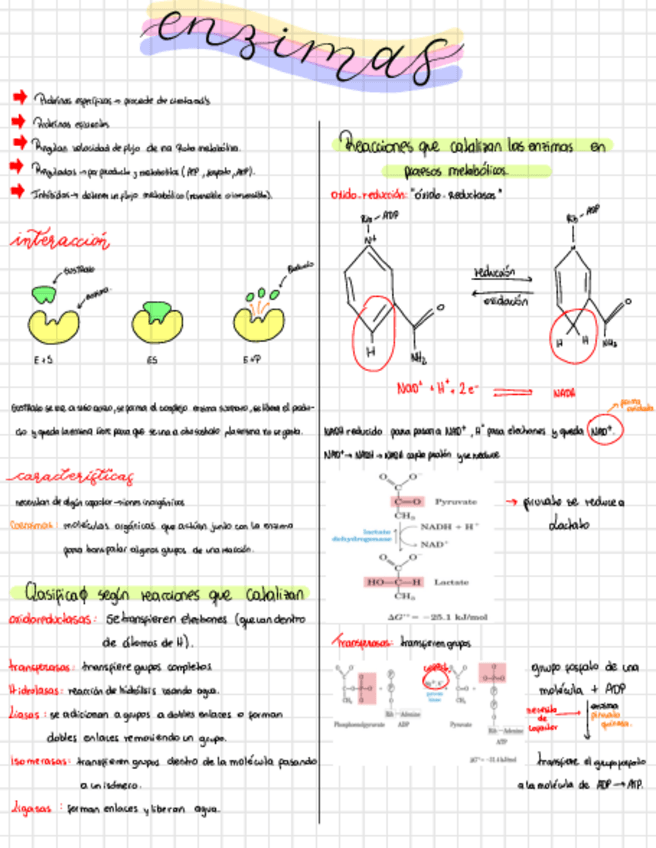 enzimas
Proteínas específicas → procede de
Proteínas
Regulan velocidad de flujo de una ruta metabólica.
Regulados → por producto y metabolitos (ATP, , AMP).
Inhibidas → detienen un flujo metabólico (reversible o irreversible).
interacción
sustrato
enzima
Producto
E + S
ES
E + P
Sustrato se une a sitio activo, se forma el complejo enzima sustrato, se libera el produc-
to y queda la enzima libre para que se una a otro sustrato, la enzima no se gasta.
características
necesitan de algún cofactor → iones inorgánicos
Coenzimas: moléculas orgánicas que actúan junto con la enzima
para transportar algunos grupos de una reacción.
Clasificaφ según reacciones que catalizan
oxidoreductasas: Se transfieren electrones (que van dentro
de átomos de H).
transferasas: transfiere grupos completos
Hidrolasas: reacción de hidólisis usando agua.
Liasas: se adicionan a grupos a dobles enlaces o forman
dobles enlaces removiendo un grupo.
isomerasas: transfieren grupos dentro de la molécula pasando
a un isómero.
Ligasas: forman enlaces y liberan agua.
Reacciones que catalizan las enzimas en
procesos metabólicos.
oxido-reducción: "óxido-reductasas"
Rib-ADP
N+
H
O
NH₂
reducción
oxidación
Rib-ADP
N
H H
O
NH₂
NAD⁺ + H⁺ + 2e⁻
NADH
forma
oxidada
NADH reducido para pasar a NAD⁺, H⁺ pasa electrones y queda NAD⁺.
NAD⁺ → NADH → NADH capta protón y se reduce
C=O
CH₃
Pyruvate
lactate
dehydrogenase
NADH + H⁺
NAD⁺
HO—C—H
CH₃
Lactate
ΔG'° = −25.1 kJ/mol
→ piruvato se reduce a
lactato
Transferasas: transfieren grupos
Phosphoenolpyruvate
Rib—Adenine
ADP
Pyruvate
Rib—Adenine
ATP
grupo fosfato de una
molécula + ADP
necesita
de
cofactor
enzima
piruvato
quinasa.
transfiere el grupo fosfato
a la molécula de ADP → ATP.